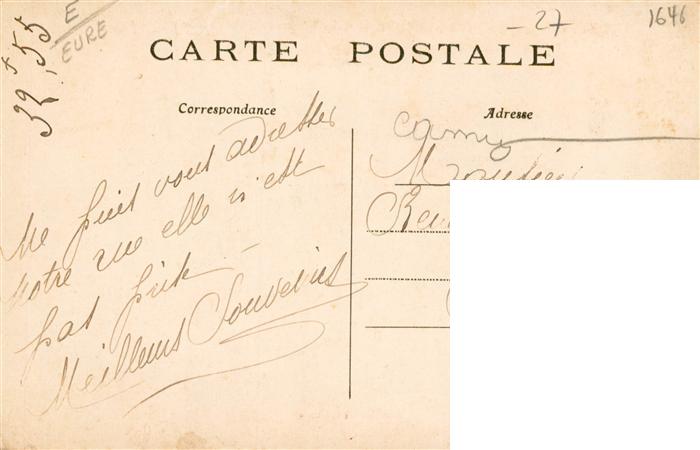 E
EURE
32,55
- 27
1646
CARTE POSTALE
Correspondance
Adresse
Camy
Me puis vous adresser
Notre rue elle n'est
pas prise -
Meilleurs Souvenirs
Monsieur